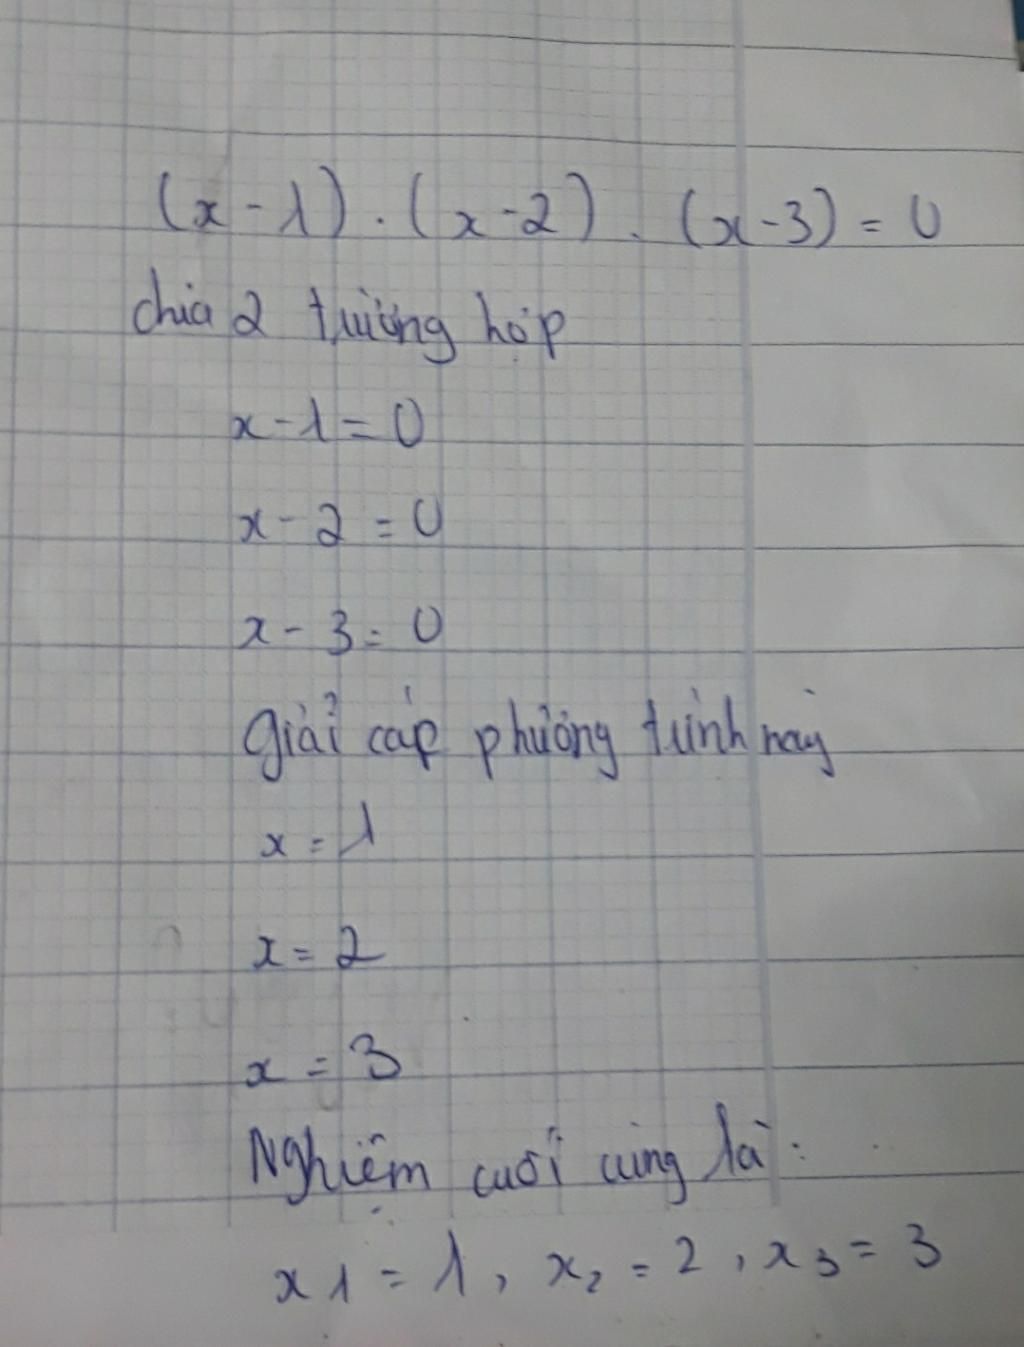 (x - 1) . (x - 2) . (x - 3) = 0
chia 2 trường hợp
x - 1 = 0
x - 2 = 0
x - 3 = 0
Giải cáp phương trình này
x = 1
x = 2
x = 3
Nghiệm cuối cùng là :
x1 = 1 , x₂ = 2 , x₃ = 3